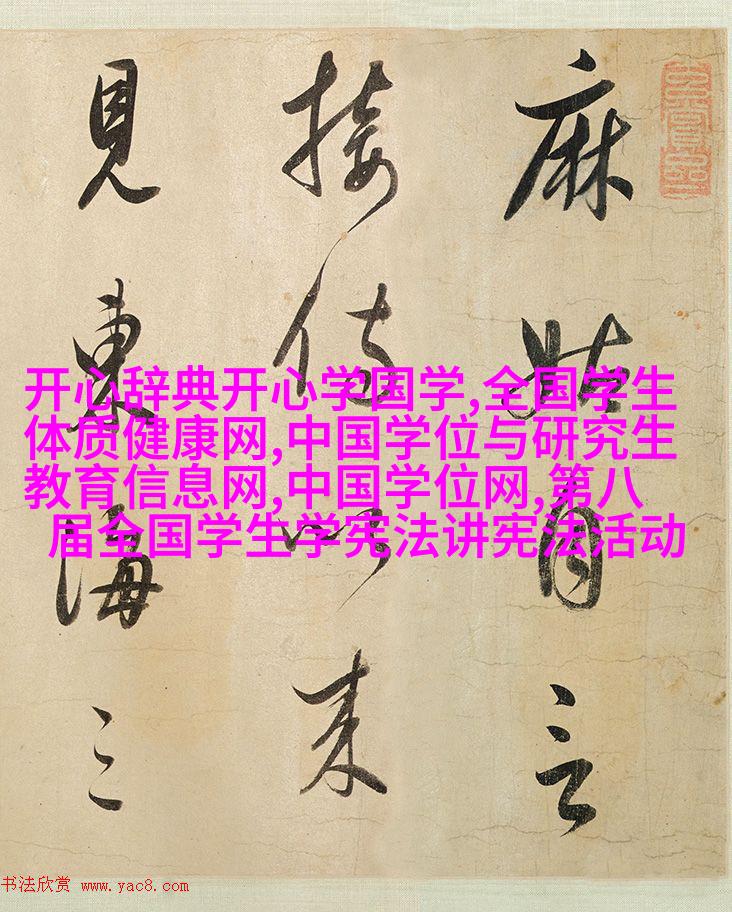 麻姑自言
接侍以来
見東海三
开心辞典开心学国学,全国学生
体质健康网,中国学位与研究生
教育信息网,中国学位网,第八
届全国学生学宪法讲宪法活动
书法欣赏 www.yac8.com